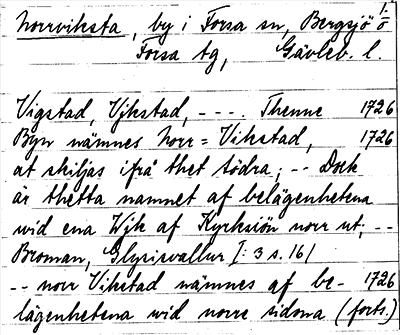 Norrviksta, by i Forsa sn, Bergsjö 1/ö
Forsa tg, Gävleb. l.
Vigstad, Vjkstad, ----. Thenne 1726
Byn nämnes Norr=Vikstad, 1726
at skiljas ifrå thet södra; -- Dock
är thetta namnet af belägenhetena
wid ena Wjk af Kyrksiön norr ut; --
Broman, Glysisvallur I: 3 s. 161
-- norr Vikstad nämnes af be- 1726
lägenhetena wid norre sidona (forts.)